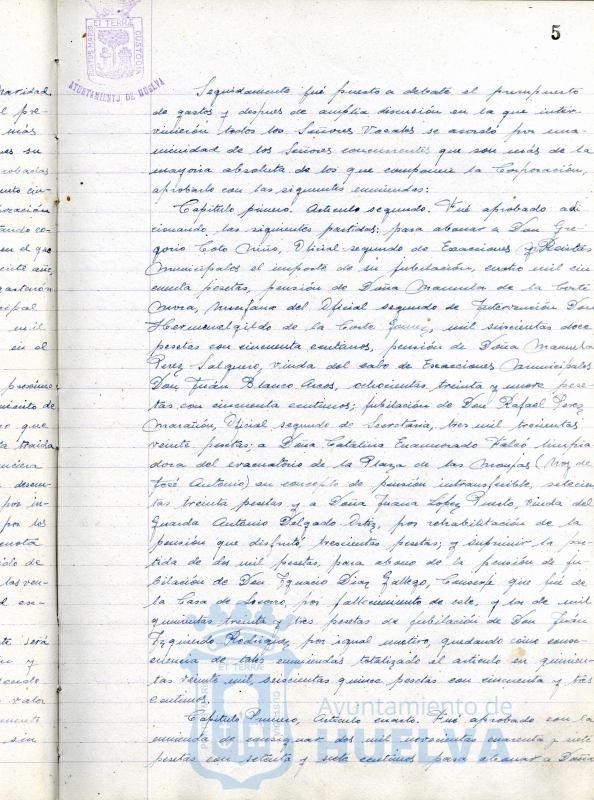 5
PORTUS MARIS ET TERRAE CUSTODIA
AYUNTAMIENTO DE HUELVA
Seguidamente fué puesto a debate el presupuesto
de gastos y despues de amplia discusión en la que inter-
vinieron todos los Señores Vocales se acordó por una-
nimidad de los Señores concurrentes que son más de la
mayoria absoluta de los que componen la Corporación,
aprobarlo con las siguientes enmiendas:
Capitulo primero. Articulo segundo. Fué aprobado adi-
cionando las siguientes partidas: para abonar a Don Gre-
gorio Coto Niño, Oficial segundo de Exacciones y Rentas
Municipales el importe de su jubilación, cuatro mil cin-
cuenta pesetas, pensión de Doña Manuela de la Corte
huerfana del Oficial segundo de Intervención Don
Hermenegildo de la Corte Gomez, mil seiscientas doce
pesetas con cincuenta centimos, pensión de Doña Manuela
Perez Salguero, viuda del cabo de Exacciones Municipales
Don Juán Blanco Arcos, ochocientas treinta y nueve pese-
tas con cincuenta centimos; jubilación de Don Rafael Perez
Marañón, Oficial segundo de Secretaria, tres mil trescientas
veinte pesetas; a Doña Catalina Enamorado limpia
dora del evacuatorio de la Plaza de las Monjas (hoy de
José Antonio) en concepto de pensión intransferible, setecien
tas treinta pesetas y a Doña Juana Lopez viuda del
Guarda Antonio Delgado Ortiz, por rehabilitación de la
pensión que disfrutó, trescientas pesetas; y suprimir la par-
tida de dos mil pesetas, para abono de la pensión de ju-
bilación de Don Ygnacio Diaz Gallego, Conserje que fué de
la Casa de Socorro, por fallecimiento de este, y las de mil
quinientas treinta y tres pesetas de jubilación de Don Juán
Yzquierdo Rodriguez, por igual motivo, quedando como conse-
cuencia de tales enmiendas totalizado el articulo en quinien-
tas veinte mil, seiscientas quince pesetas con cincuenta y tres
centimos.
Capitulo Primero, Articulo cuarto. Fué aprobado con la
enmienda de consignar dos mil novecientas cuarenta y siete
pesetas con setenta y siete centimos para abonar a Doña
Ayuntamiento de
HUELVA